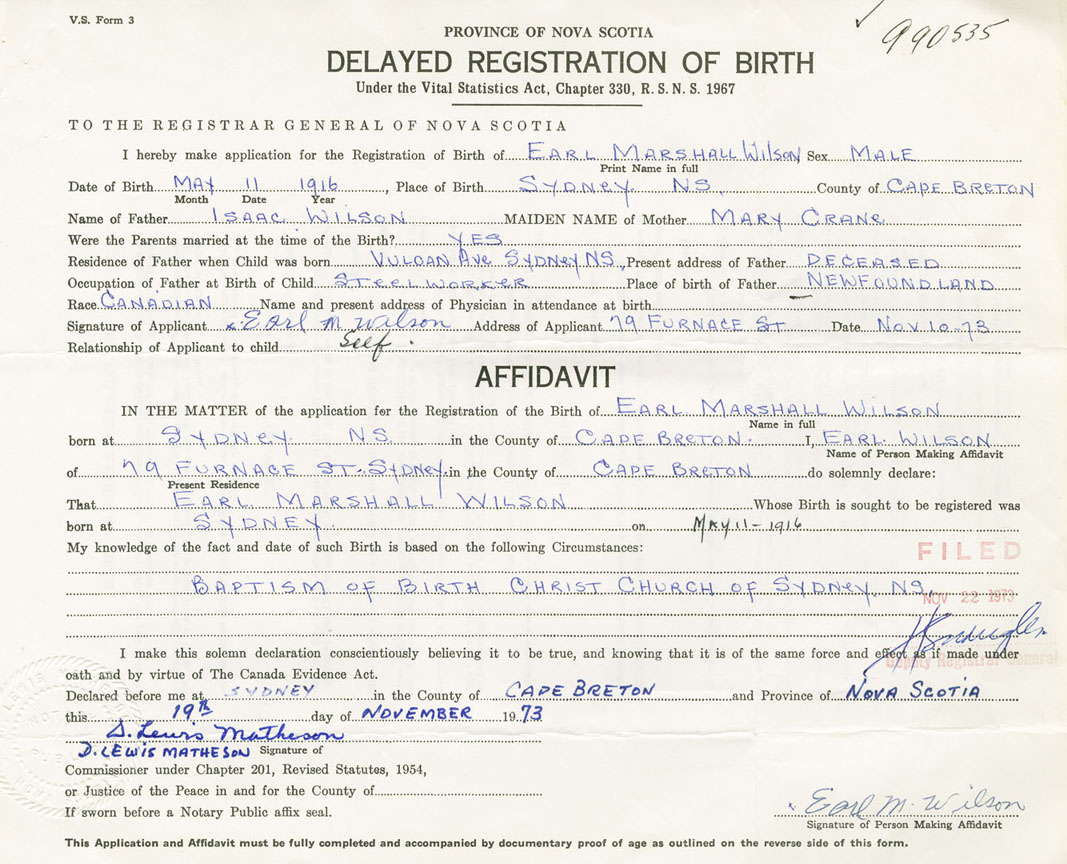 V.S. Form 3
990535
PROVINCE OF NOVA SCOTIA
DELAYED REGISTRATION OF BIRTH
Under the Vital Statistics Act, Chapter 330, R. S. N. S. 1967
TO THE REGISTRAR GENERAL OF NOVA SCOTIA
I hereby make application for the Registration of Birth of EARL MARSHALL WILSON Sex MALE
Print Name in full
Date of Birth MAY 11 1916, Place of Birth SYDNEY NS County of CAPE BRETON
Month Date Year
Name of Father ISAAC WILSON MAIDEN NAME of Mother MARY CRANE
Were the Parents married at the time of the Birth? YES
Residence of Father when Child was born VULCAN AVE SYDNEY NS, Present address of Father DECEASED
Occupation of Father at Birth of Child STEELWORKER Place of birth of Father NEWFOUNDLAND
Race CANADIAN Name and present address of Physician in attendance at birth
Signature of Applicant x Earl M Wilson Address of Applicant 79 FURNACE ST Date NOV 10-73
Relationship of Applicant to child Self.
AFFIDAVIT
IN THE MATTER of the application for the Registration of the Birth of EARL MARSHALL WILSON
Name in full
born at SYDNEY NS. in the County of CAPE BRETON. I, EARL WILSON
Name of Person Making Affidavit
of 79 FURNACE ST. SYDNEY in the County of CAPE BRETON do solemnly declare:
Present Residence
That EARL MARSHALL WILSON Whose Birth is sought to be registered was
born at SYDNEY on MAY 11-1916
My knowledge of the fact and date of such Birth is based on the following Circumstances:
FILED
BAPTISM OF BIRTH CHRIST CHURCH OF SYDNEY NS.
NOV 22 1973
I make this solemn declaration conscientiously believing it to be true, and knowing that it is of the same force and effect as if made under
Deputy Registrar General
oath and by virtue of The Canada Evidence Act.
Declared before me at SYDNEY in the County of CAPE BRETON and Province of NOVA SCOTIA
this 19th day of NOVEMBER 1973
D. Lewis Matheson
D. LEWIS MATHESON Signature of
Commissioner under Chapter 201, Revised Statutes, 1954,
or Justice of the Peace in and for the County of
If sworn before a Notary Public affix seal.
x Earl M. Wilson
Signature of Person Making Affidavit
This Application and Affidavit must be fully completed and accompanied by documentary proof of age as outlined on the reverse side of this form.